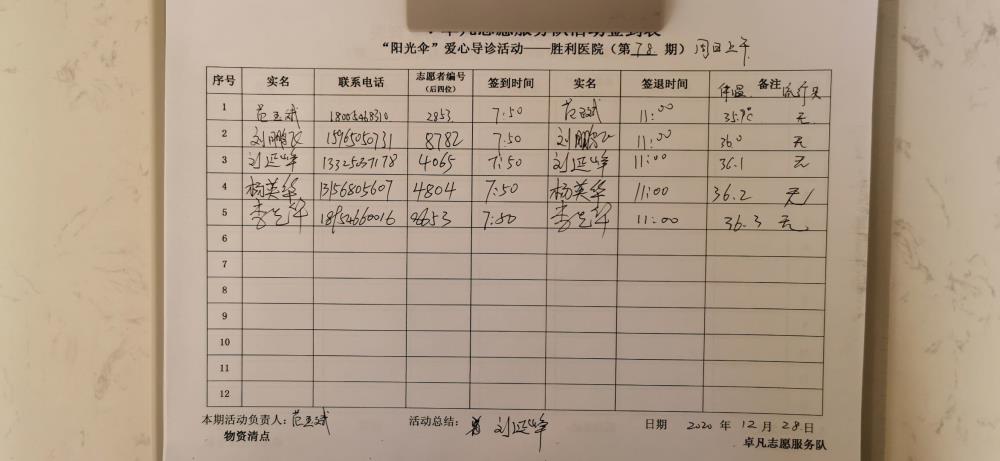 卓凡志愿服务队活动签到表
“阳光伞”爱心导诊活动——胜利医院（第78期）周日上午
序号 实名 联系电话 志愿者编号（后四位） 签到时间 实名 签退时间 体温 备注 流行史
1 范玉斌 18005468310 2853 7:50 范玉斌 11:00 35.9℃ 无
2 刘鹏 15965050731 8782 7:50 刘鹏 11:00 36.0 无
3 刘延峰 13325037178 4065 7:50 刘延峰 11:00 36.1 无
4 杨英华 13156805607 4804 7:50 杨英华 11:00 36.2 无
5 李 7:50 李 11:00 36.3 无
6
7
8
9
10
11
12
本期活动负责人：范玉斌 活动总结：刘延峰 日期 2020年12月28日
物资清点 卓凡志愿服务队